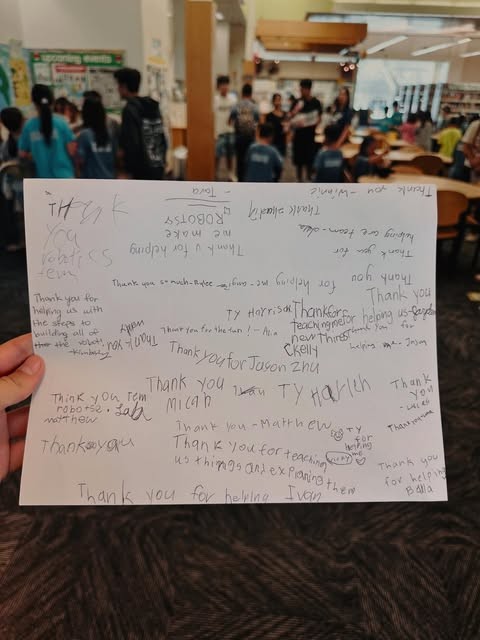 upcoming events
Thank you - Winnie
Thank
helping are team -
Thank you for
- Tova
ROBOTS
we make
Thank u for helping
THANK
YOU
robotics
team
Thank you for helping me
Thank you so much - Rylee
Thank you for
helping us with
the steps to
building all of
the robot
Thank you
Ty Harrison
Thank you for the fun! -
Thank for
teaching me for
new things
Kelly
Thank you
for helping us
Thank you for
helping me - Jason
Thank you for Jason Zhu
Thank you
Micah
Ty Harich
Think you Tem
robotse.
matthew
Thank you
Thank you - Matthew
Ty
for
helping
me
Thank
you
- Lucas
Thank you for teaching
us things and explaning them
Thank you
for helping
Bella
Thank you for helping Ivan